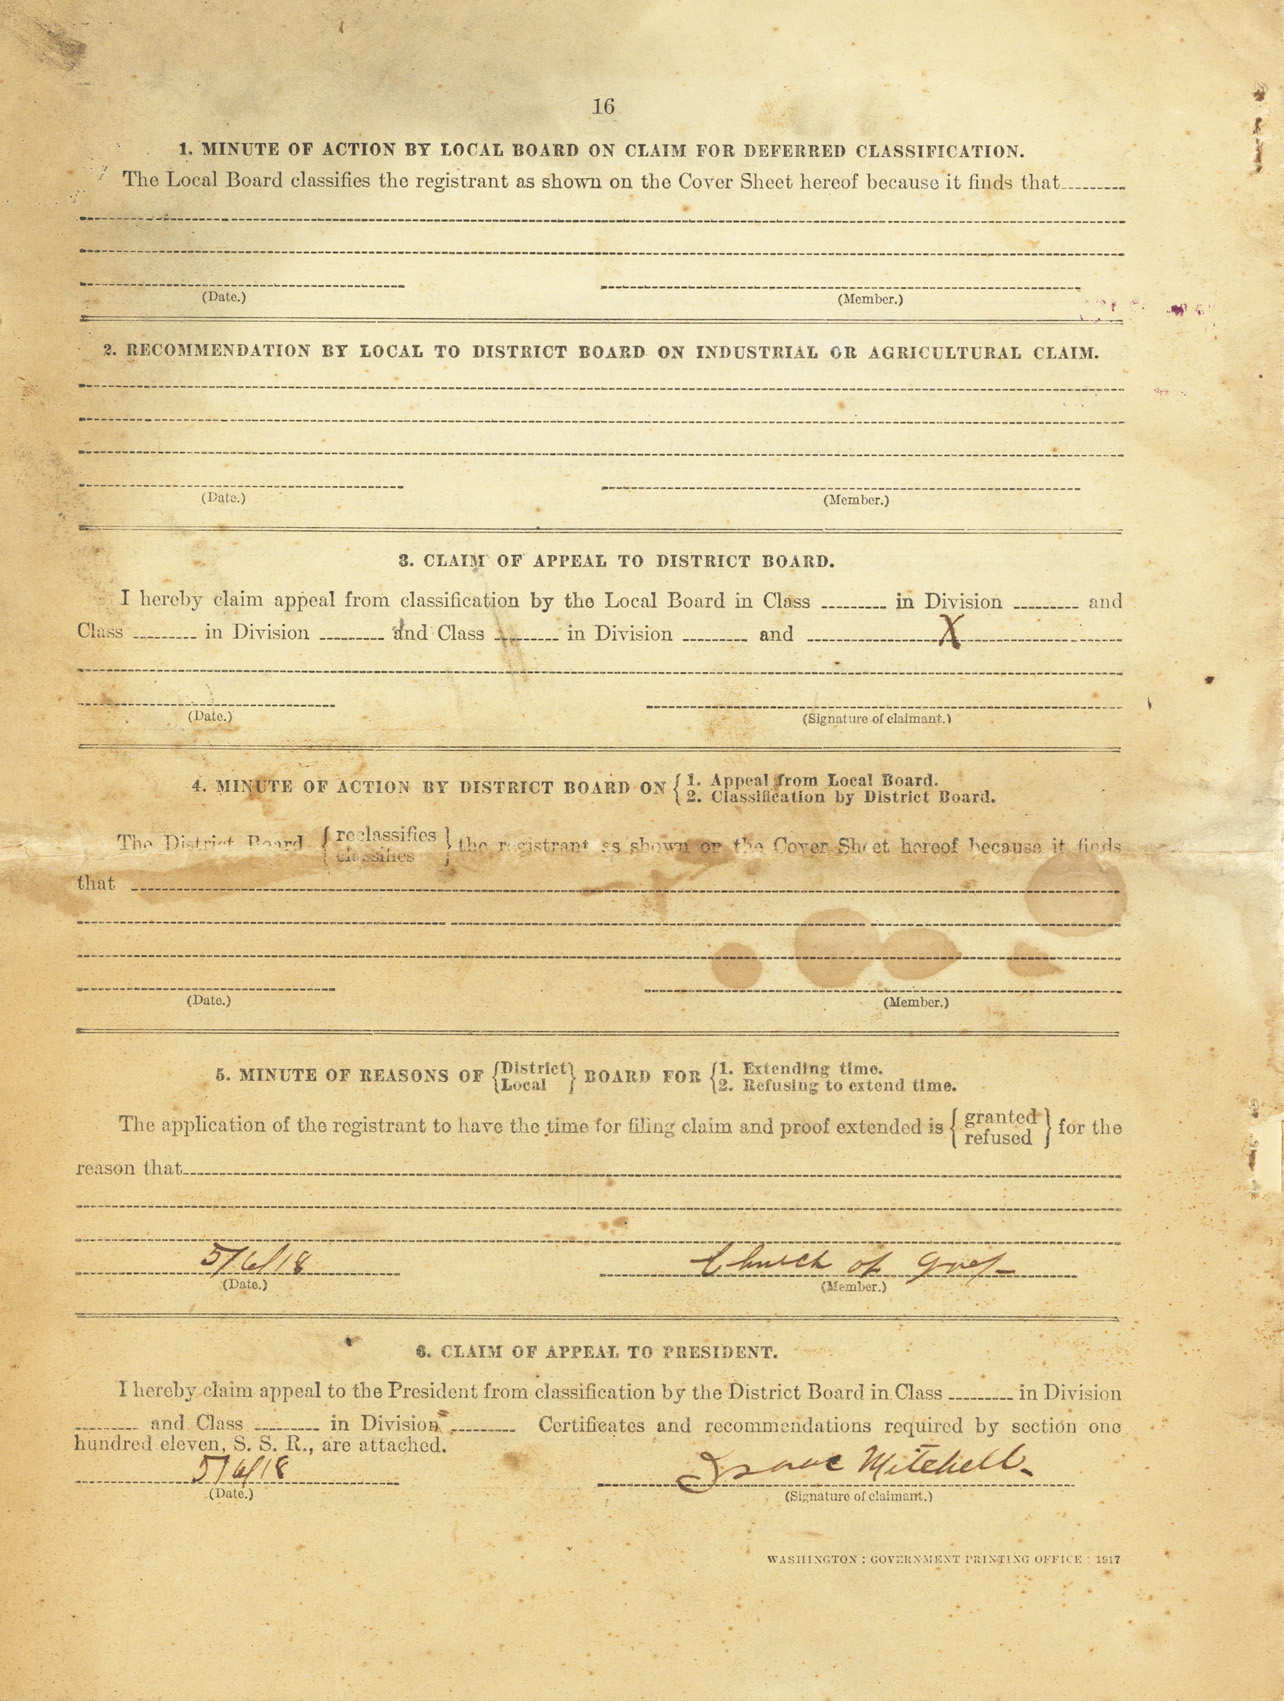 16
1. MINUTE OF ACTION BY LOCAL BOARD ON CLAIM FOR DEFERRED CLASSIFICATION.
The Local Board classifies the registrant as shown on the Cover Sheet hereof because it finds that
(Date.) (Member.)
2. RECOMMENDATION BY LOCAL TO DISTRICT BOARD ON INDUSTRIAL OR AGRICULTURAL CLAIM.
(Date.) (Member.)
3. CLAIM OF APPEAL TO DISTRICT BOARD.
I hereby claim appeal from classification by the Local Board in Class in Division and
Class in Division and Class in Division and X
(Date.) (Signature of claimant.)
4. MINUTE OF ACTION BY DISTRICT BOARD ON { 1. Appeal from Local Board.
2. Classification by District Board.
The District Board { reclassifies
classifies } the registrant as shown on the Cover Sheet hereof because it finds
that
(Date.) (Member.)
5. MINUTE OF REASONS OF { District
Local } BOARD FOR { 1. Extending time.
2. Refusing to extend time.
The application of the registrant to have the time for filing claim and proof extended is { granted
refused } for the
reason that
5/6/18 Church of
(Date.) (Member.)
6. CLAIM OF APPEAL TO PRESIDENT.
I hereby claim appeal to the President from classification by the District Board in Class in Division
and Class in Division Certificates and recommendations required by section one
hundred eleven, S. S. R., are attached.
5/6/18 Isaac Mitchell
(Date.) (Signature of claimant.)
WASHINGTON : GOVERNMENT PRINTING OFFICE : 1917